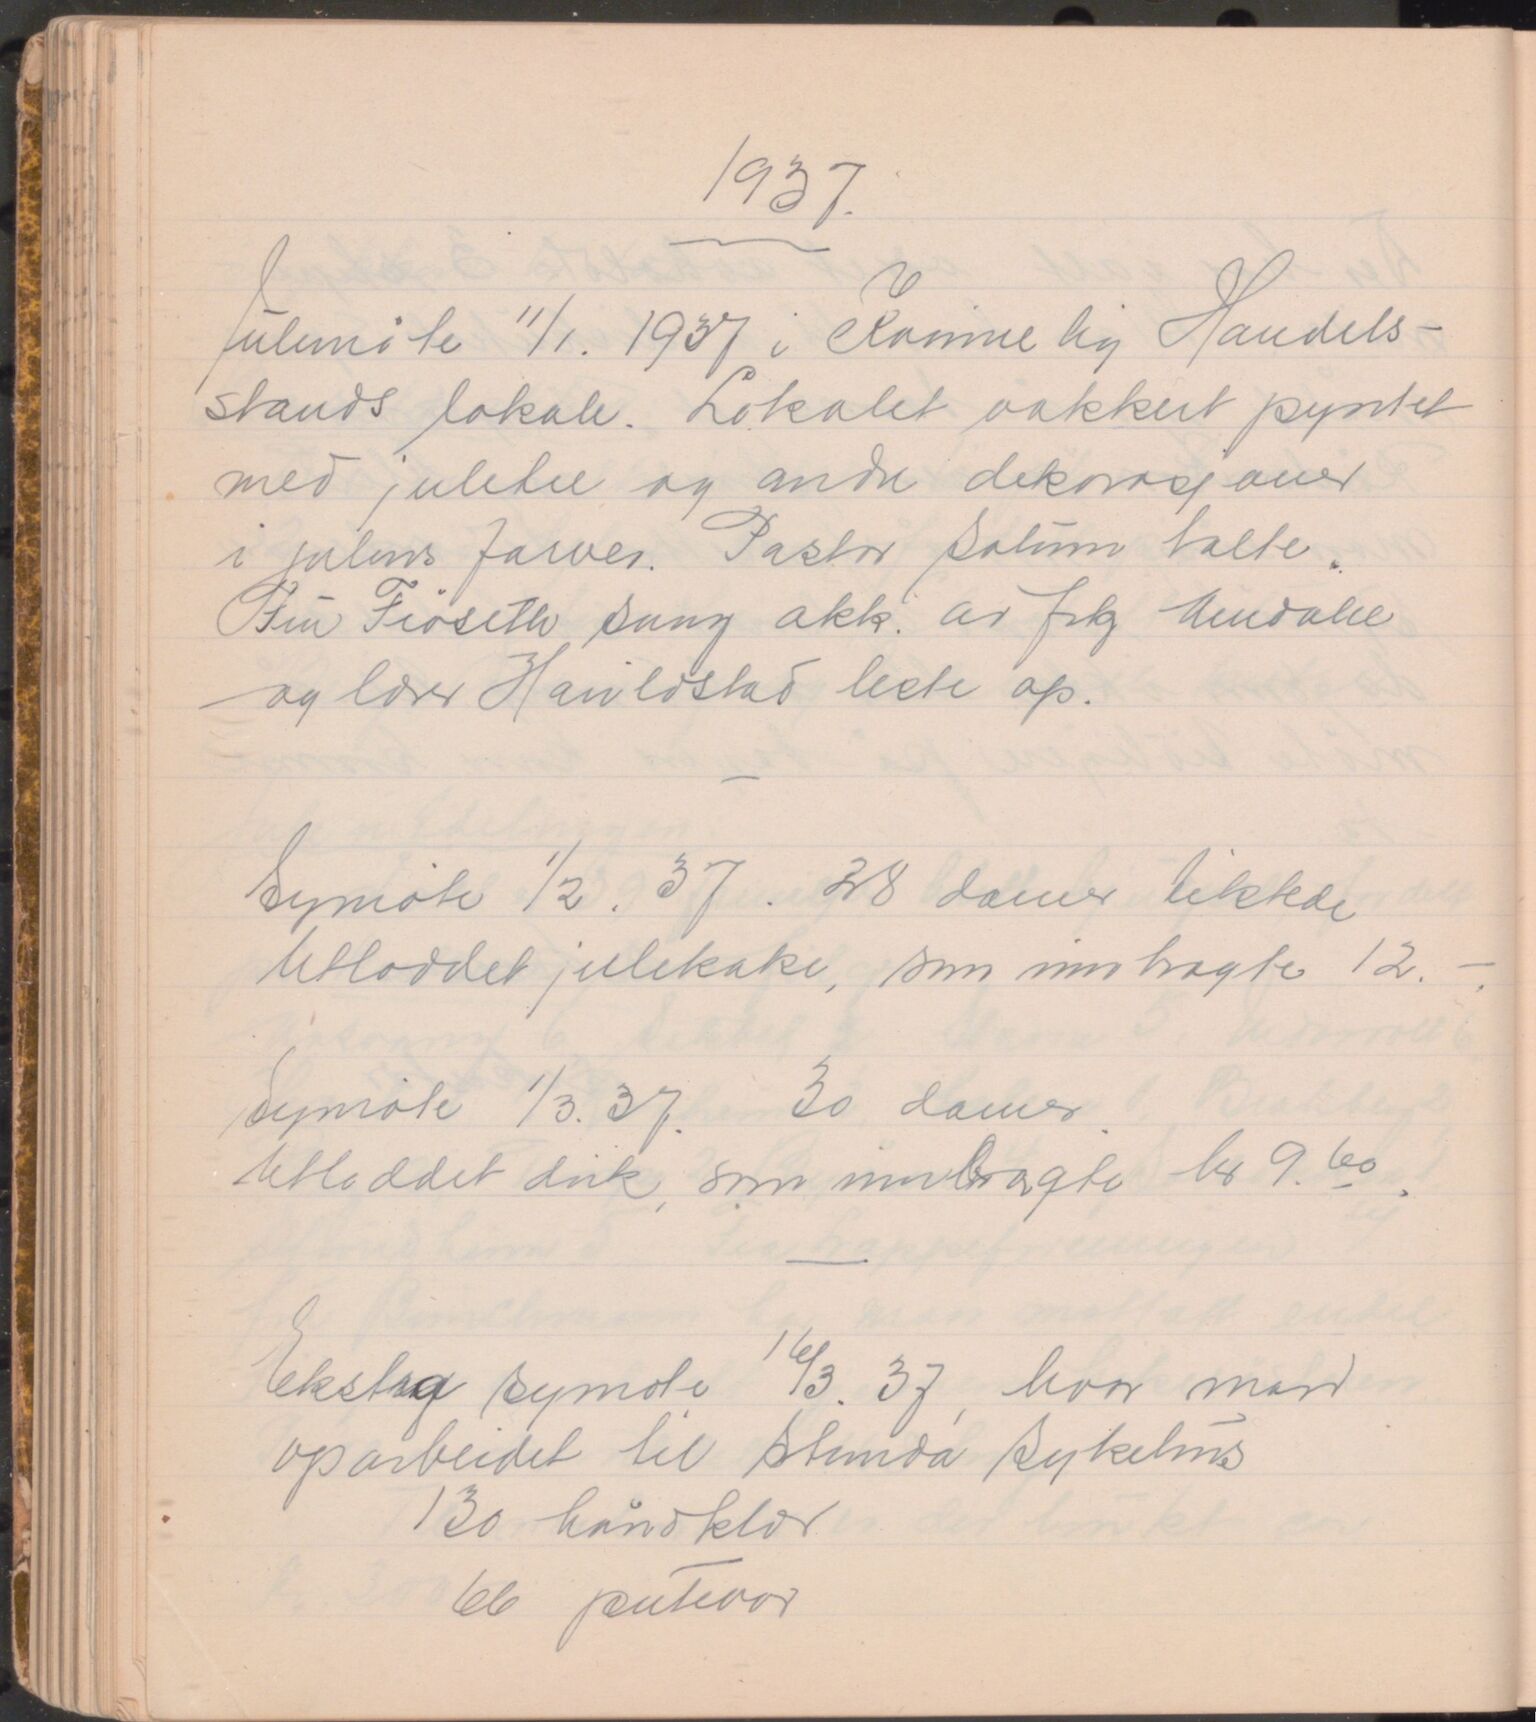 1937.
Julemöte 11/1. 1937 i Kvinnelig Handels-
stands lokale. Lokalet vakkert pyntet
med juletre og andre dekorasjoner
i julens farver. Pastor Solum talte.
Fru Fiöseth sang akk. av frk
og lærer leste op.
Symöte 1/2. 37. 28 damer
Utloddet julekake, som innbragte 12.-.
Symöte 1/3. 37. 30 damer.
Utloddet duk, som innbragte kr 9.60.
Ekstra symöte 16/3. 37, hvor man
oparbeidet til Strinda sykehus
130 håndklær
66 putevar